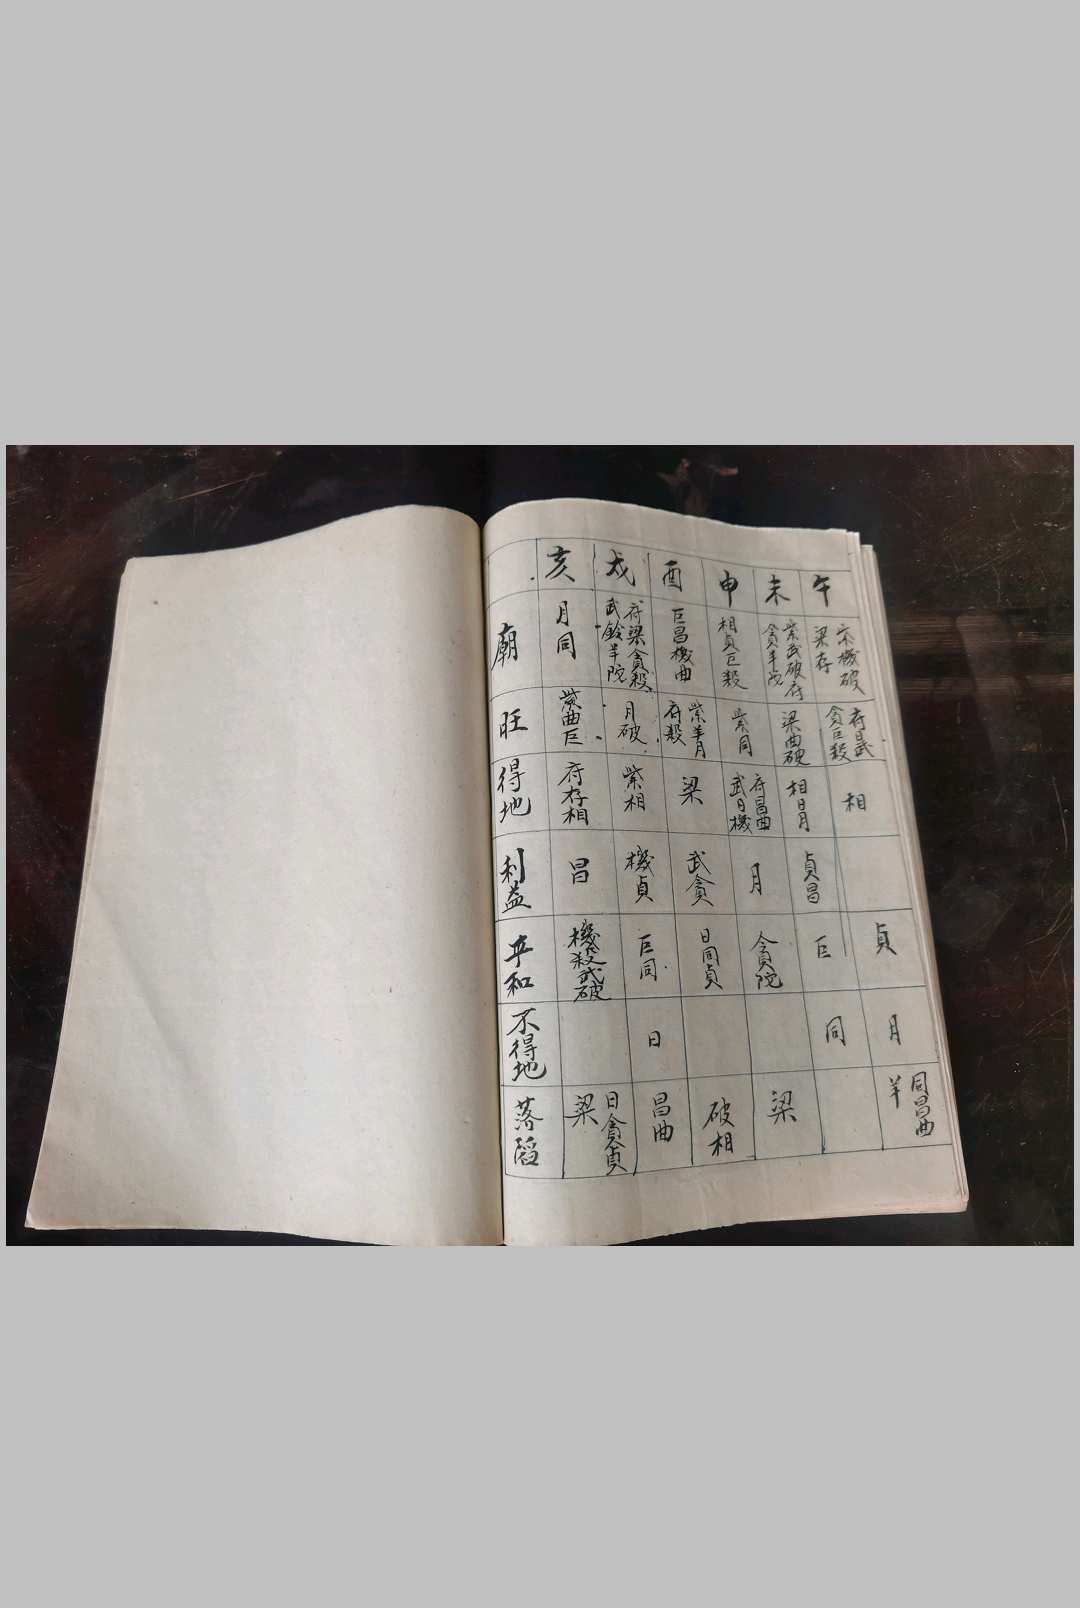 亥 戌 酉 申 未 午
廟
月同
府梁貪殺
武鈴羊陀
巨昌機曲
相貞巨殺
紫武破府
貪羊陀
紫機破
梁存
旺
紫曲巨
月破
紫羊月
府殺
紫同
梁曲破
府日武
貪巨殺
得地
府存相
紫相
梁
府昌曲
武日機
相日月
相
利益
昌
機貞
武貪
月
貞昌
平和
機殺武破
巨同
日同貞
貪陀
巨
貞
不得地
日
同
月
落陷
日貪貞
梁
昌曲
破相
梁
同昌曲
羊